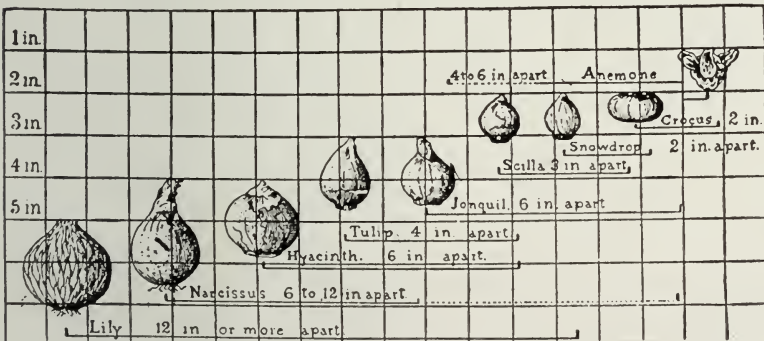 1 in.
2 in.
4 to 6 in apart Anemone
3 in
Crocus 2 in.
Snowdrop 2 in. apart.
4 in.
Scilla 3 in apart
5 in
Jonquil, 6 in. apart
Tulip. 4 in. apart
Hyacinth. 6 in apart.
Narcissus 6 to 12 in apart
Lily 12 in or more apart